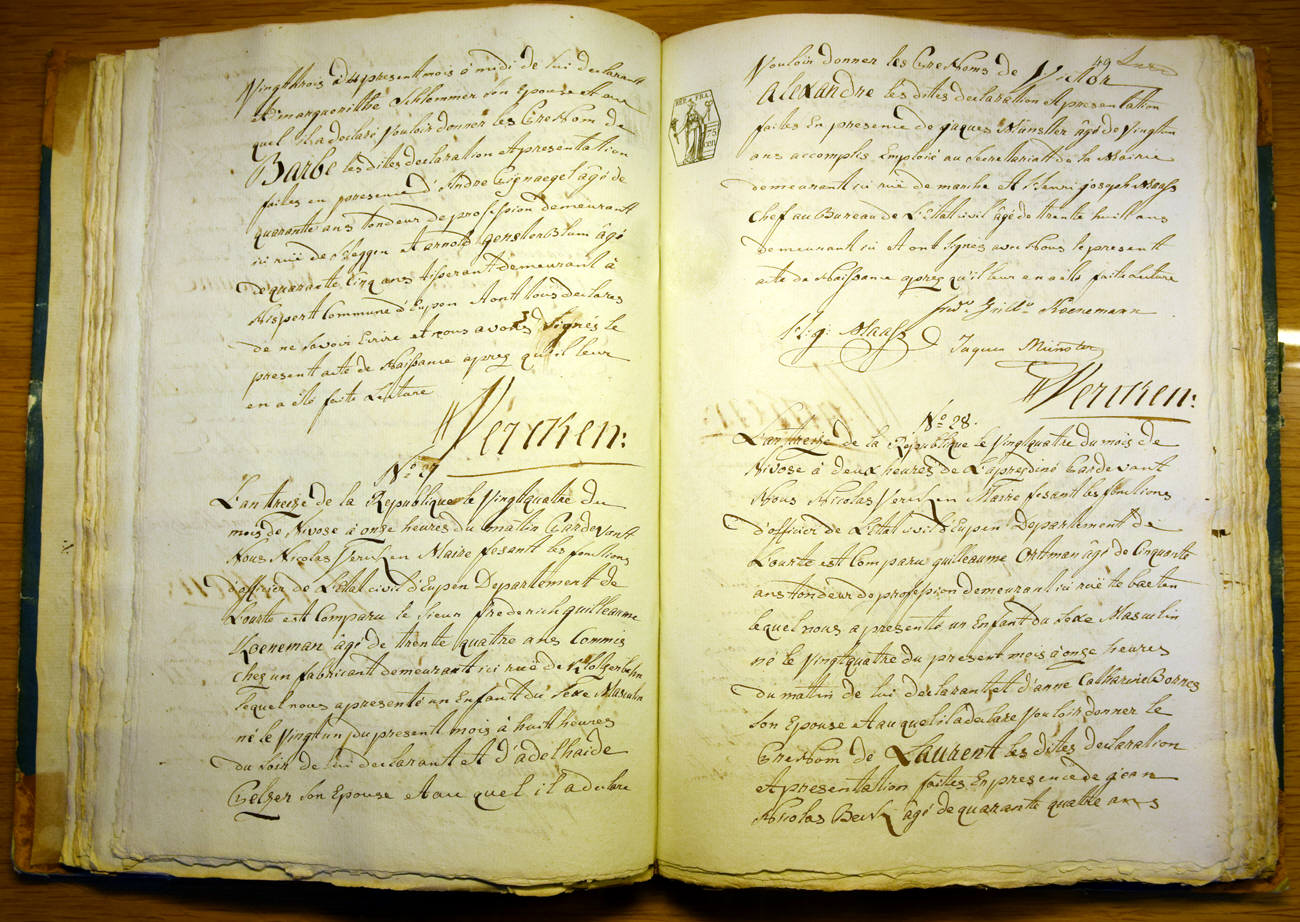 Vingttrois du present mois à midi de lui declarant
et marguerithe Schlommer son Epouse et au
quel il a declaré Vouloir donner les Prenom de
Barbe les dites declaration et presentation
faites en presence d'Andre agé de
quarante ans tondeur de profession demeurant
ici ruë de et arnold âgé
de quarante Cinq ans demeurant à
Nispert Commune d'Eupen et ont tous declarés
de ne savoir Ecrire et nous avons signés le
present acte de Naissance apres qu'il leur
en a été faite Lecture
Vercken:
No 27
L'an treize de la Republique le Vingtquatre du
mois de Nivose à onze heures du matin Pardevant
Nous Nicolas Vercken Maire fesant les fonctions
d'officier de L'Etat civil d'Eupen Departement de
L'ourte est Comparu le Sieur frederich guilleaume
Koeneman âgé de trente quattre ans Commis
chez un fabricant demeurant ici ruë de
lequel nous a presenté un Enfant du Sexe Masculin
né le Vingt un du present mois à huit heures
du soir de lui declarant et d'adelhaide
Pelzer son Epouse et au quel il a declaré
49
Vouloir donner les Prenoms de Victor
Alexandre les dites declaration et presentation
REP. FRA.
75
CEN
faites En presence de jaques Münster âgé de Vingtun
ans accomplis Emploié au Secretariatt de la Mairie
demeurant ici ruë de marche et Henri joseph Maass
Chef au Bureau de L'Etat civil âgé de trente huit ans
demeurant ici et ont signés avec Nous le present
acte de Naissance apres qu'il leur en a été faite Lecture
Fried. Wilh. Koenemann
H: j: Maass Jaques Münster
Vercken:
No 28.
L'an treize de la Republique le Vingtquatre du mois de
Nivose à deux heures de L'apresdiné Pardevant
Nous Nicolas Vercken Maire fesant les fonctions
d'officier de L'Etat civil d'Eupen Departement de
L'ourte est Comparu guilleaume Ortman âgé de Cinquante
ans tondeur de profession demeurant ici ruë
lequel nous a presenté un Enfant du Sexe Masculin
né le Vingtquatre du present mois à onze heures
du matin de lui declarant et d'anne Catharine Bornes
son Epouse et au quel il a declaré Vouloir donner le
Prenom de Laurent les dites declaration
et presentation faites En presence de jean
Nicolas Beck âgé de quarante quattre ans